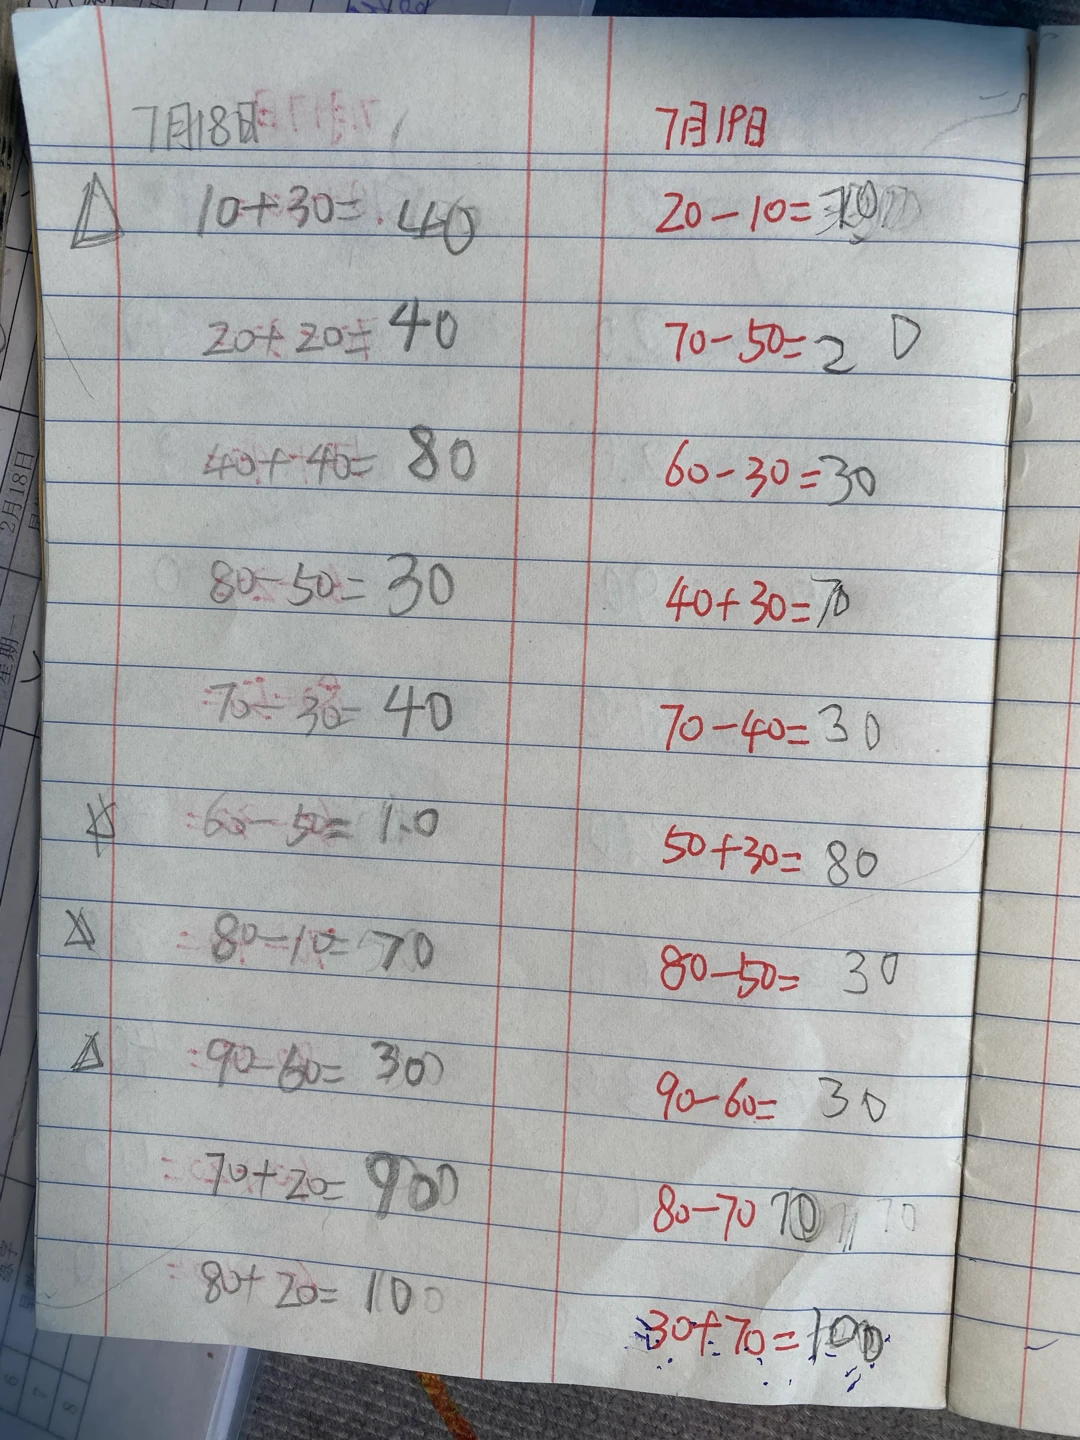 7月18日
10+30=40
20+20=40
40+40=80
80-50=30
70-30=40
60-50=10
80-10=70
90-60=30
70+20=90
80+20=100
7月19日
20-10=10
70-50=20
60-30=30
40+30=70
70-40=30
50+30=80
80-50=30
90-60=30
80-70 10
30+70=100
2月18日
星期一